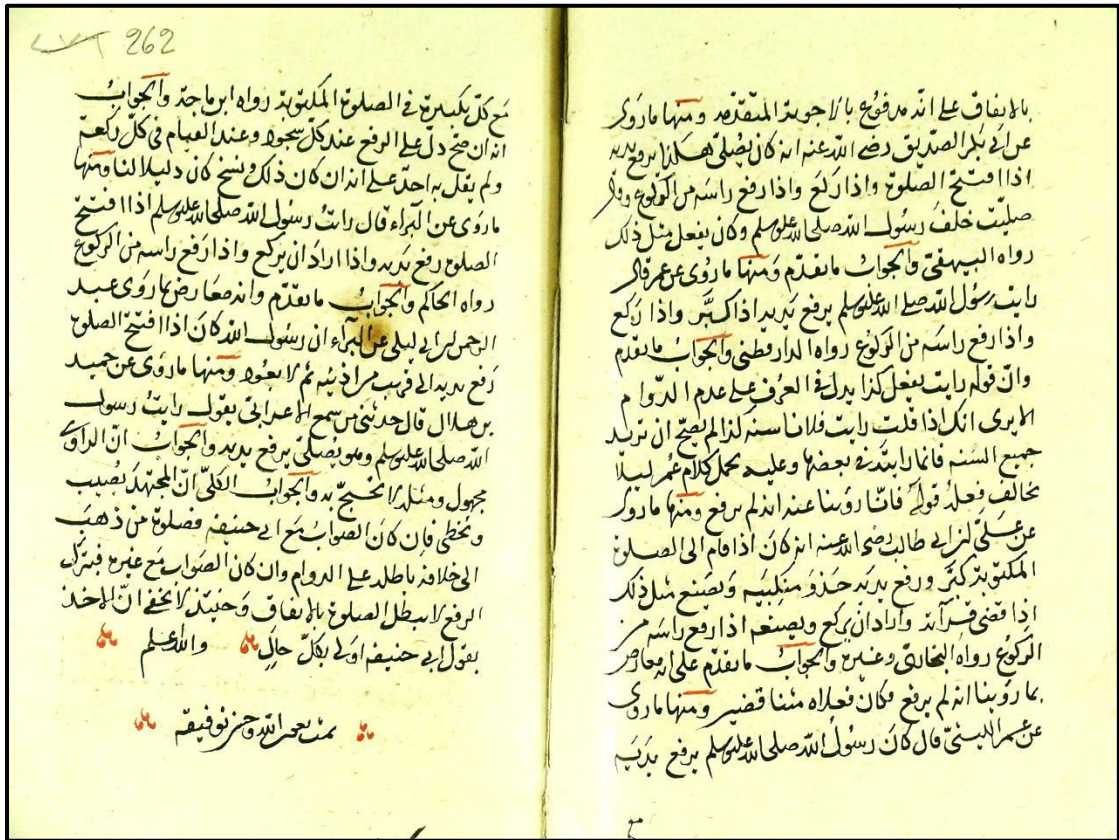 بالاتفاق على انه مدفوع بالاجوبة المتقدمة ومنها ما روى
عن ابى بكر الصديق رضى الله عنه انه كان يصلى هكذا يرفع يديه
اذا افتتح الصلوة واذا ركع واذا رفع راسه من الركوع وقال
صليت خلف رسول الله صلى الله عليه وسلم وكان يفعل مثل ذلك
رواه البيهقى والجواب ما تقدم ومنها ما روى عن عمر قال
رايت رسول الله صلى الله عليه وسلم يرفع يديه اذا كبّر واذا ركع
واذا رفع راسه من الركوع رواه الدارقطنى والجواب ما تقدم
وانّ قوله رايت يفعل كذا يدل فى العرف على عدم الدوام
الا يرى انك اذا قلت رايت فلانا سنة كذا لم يصحّ ان تريد
جميع السنه فانما رايته فى بعضها وعليه يحمل كلام عمر ليلا
يخالف فعله قوله فانّا روينا عنه انه لم يرفع ومنها ما روى
عن علىّ بن ابى طالب رضى الله عنه انه كان اذا قام الى الصلوة
المكتوبة كبّر ورفع يديه حذو منكبيه ويصنع مثل ذلك
اذا قضى قرآته واراد ان يركع ويصنعه اذا رفع راسه من
الركوع رواه البخارىّ وغيره والجواب ما تقدّم على انه معارض
بما روينا انه لم يرفع وكان فعلاه
ومنها ما روى
عن عمر الليثىّ قال كان رسول الله صلى الله عليه وسلم يرفع يديه
262
مع كلّ تكبيرة فى الصلوة المكتوبة رواه ابن ماجة والجواب
انه ان صحّ دلّ على الرفع عند كلّ سجود وعند القيام فى كلّ ركعة
ولم يقل به احدٌ على انه ان كان ذلك ونسخ كان دليلا لنا ومنها
ما روى عن البراء قال رايتُ رسول الله صلى الله عليه وسلم اذا افتتح
الصلوة رفع يديه واذا اراد ان يركع واذا رفع راسه من الركوع
رواه الحاكم والجوابُ ما تقدّم وانه معارض بما روى عبد
الرحمن بن ابى ليلى عن البرآء ان رسول الله كان اذا افتتح الصلوة
رفع يديه الى قريب من اذنيه ثم لا يعود ومنها ما روى عن حميد
بن هلال قال حدثنى من سمع الاعرابىّ يقول رايتُ رسول
الله صلى الله عليه وسلم وهو يصلّى يرفع يديه والجواب انّ الراوى
مجهول ومثله لا يحتجّ به والجواب الكلّى انّ المجتهد يُصيب
ويخطى فان كان الصوابُ مع ابى حنيفه فصلوة من ذهب
الى خلافه باطله على الدوام وان كان الصواب مع غيره فبترك
الرفع لا يبطل الصلوة بالاتفاق وحينئذ لا يخفى انّ الاخذ
بقول ابى حنيفه اولى بكلّ حال والله اعلم
تمت بعون الله وحسن توفيقه